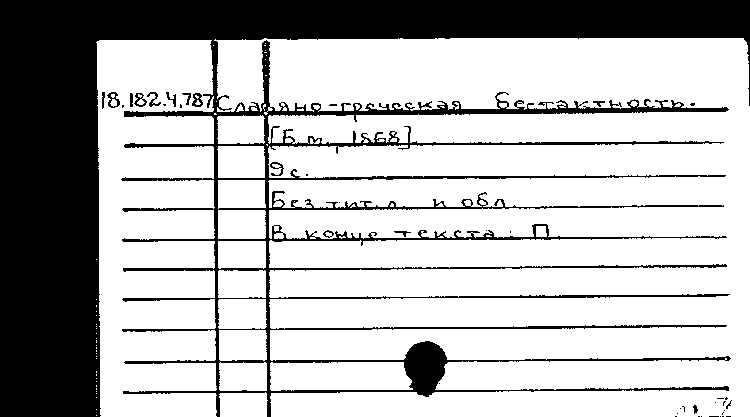 18.182.4.787 Славяно-греческая бестактность.
[Б.м., 1868]
9 с.
Без тит.л. и обл.
В конце текста: П